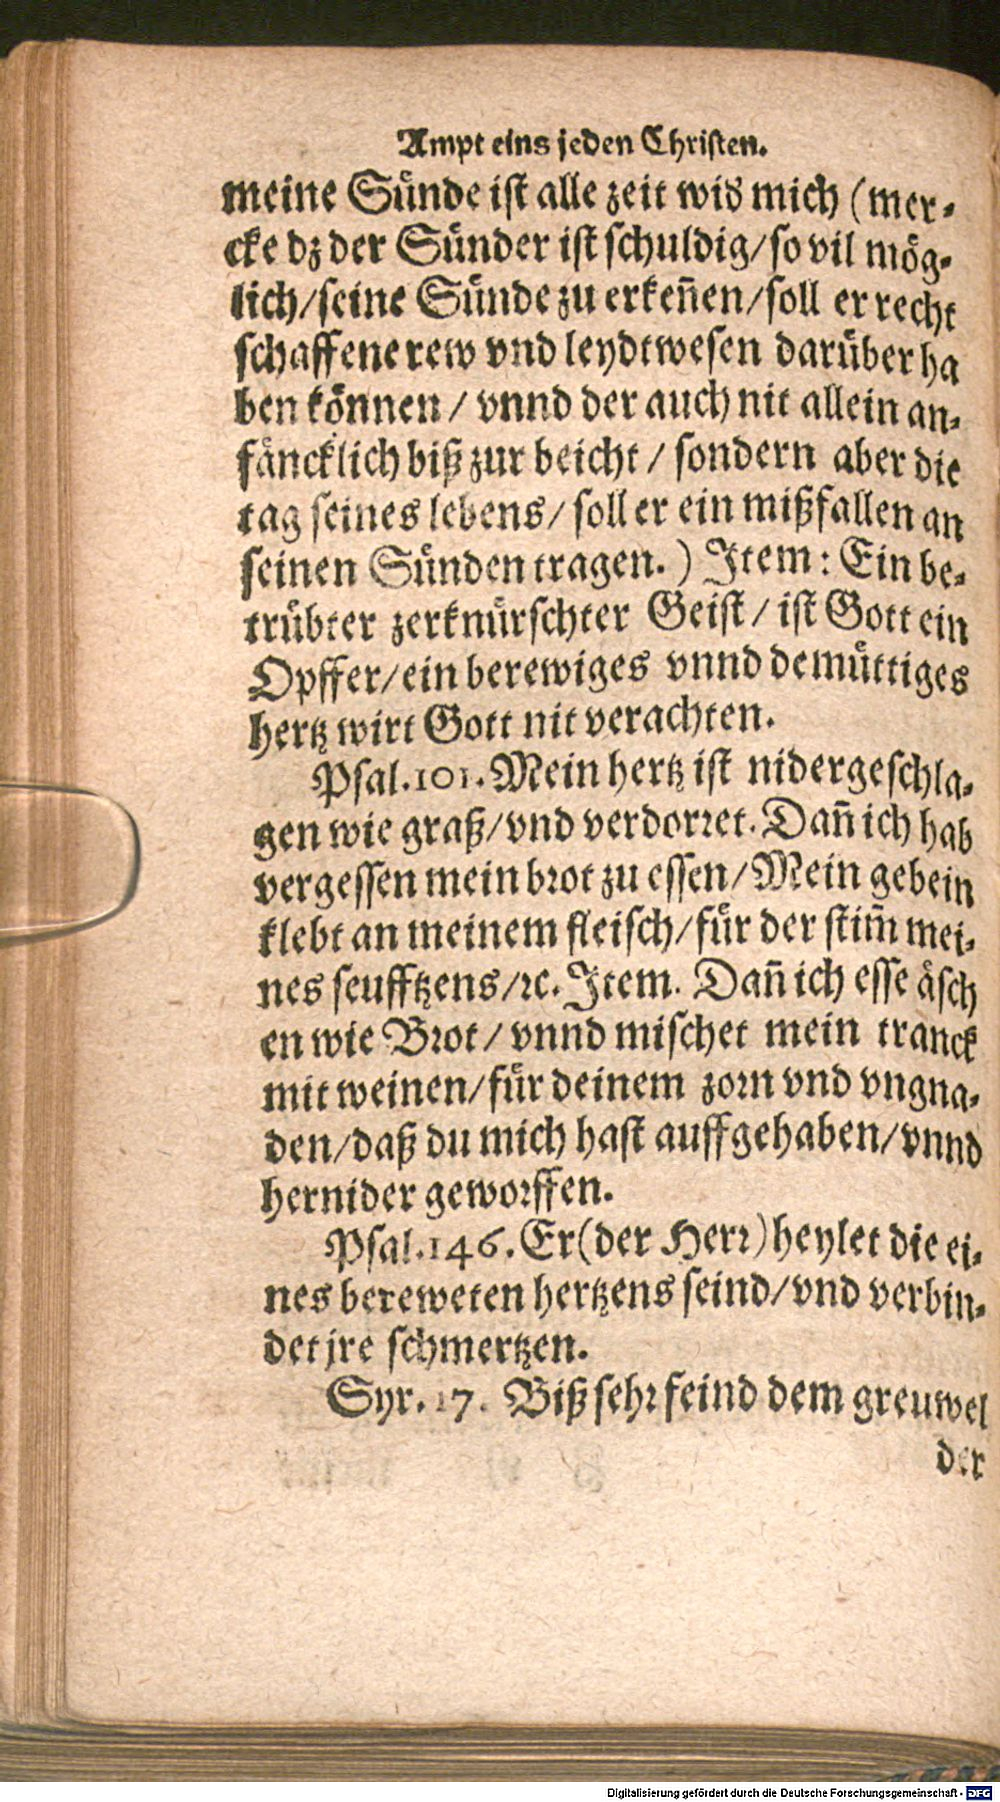 Ampt eins jeden Christen.
meine Sünde ist alle zeit wid mich (mer-
cke dz der Sünder ist schuldig/so vil mög-
lich/seine Sünde zu erkeñen/soll er recht
schaffene rew vnd leydtwesen darüber ha
ben können / vnnd der auch nit allein an-
fäncklich biß zur beicht / sondern aber die
tag seines lebens/ soll er ein mißfallen an
seinen Sünden tragen.) Item: Ein be-
trübter zerknürschter Geist/ ist Gott ein
Opffer/ein berewiges vnnd demüttiges
hertz wirt Gott nit verachten.
Psal.101. Mein hertz ist nidergeschla-
gen wie graß/vnd verdorret. Dañ ich hab
vergessen mein brot zu essen/Mein gebein
klebt an meinem fleisch/für der stim̃ mei-
nes seufftzens/ꝛc. Item. Dañ ich esse äsch
en wie Brot/ vnnd mischet mein tranck
mit weinen/für deinem zorn vnd vngna-
den/daß du mich hast auffgehaben/vnnd
hernider geworffen.
Psal.146. Er(der Herr)heylet die ei-
nes bereweten hertzens seind/vnd verbin-
det jre schmertzen.
Syr.17. Biß sehr feind dem greuwel
der
Digitalisierung gefördert durch die Deutsche Forschungsgemeinschaft - DFG